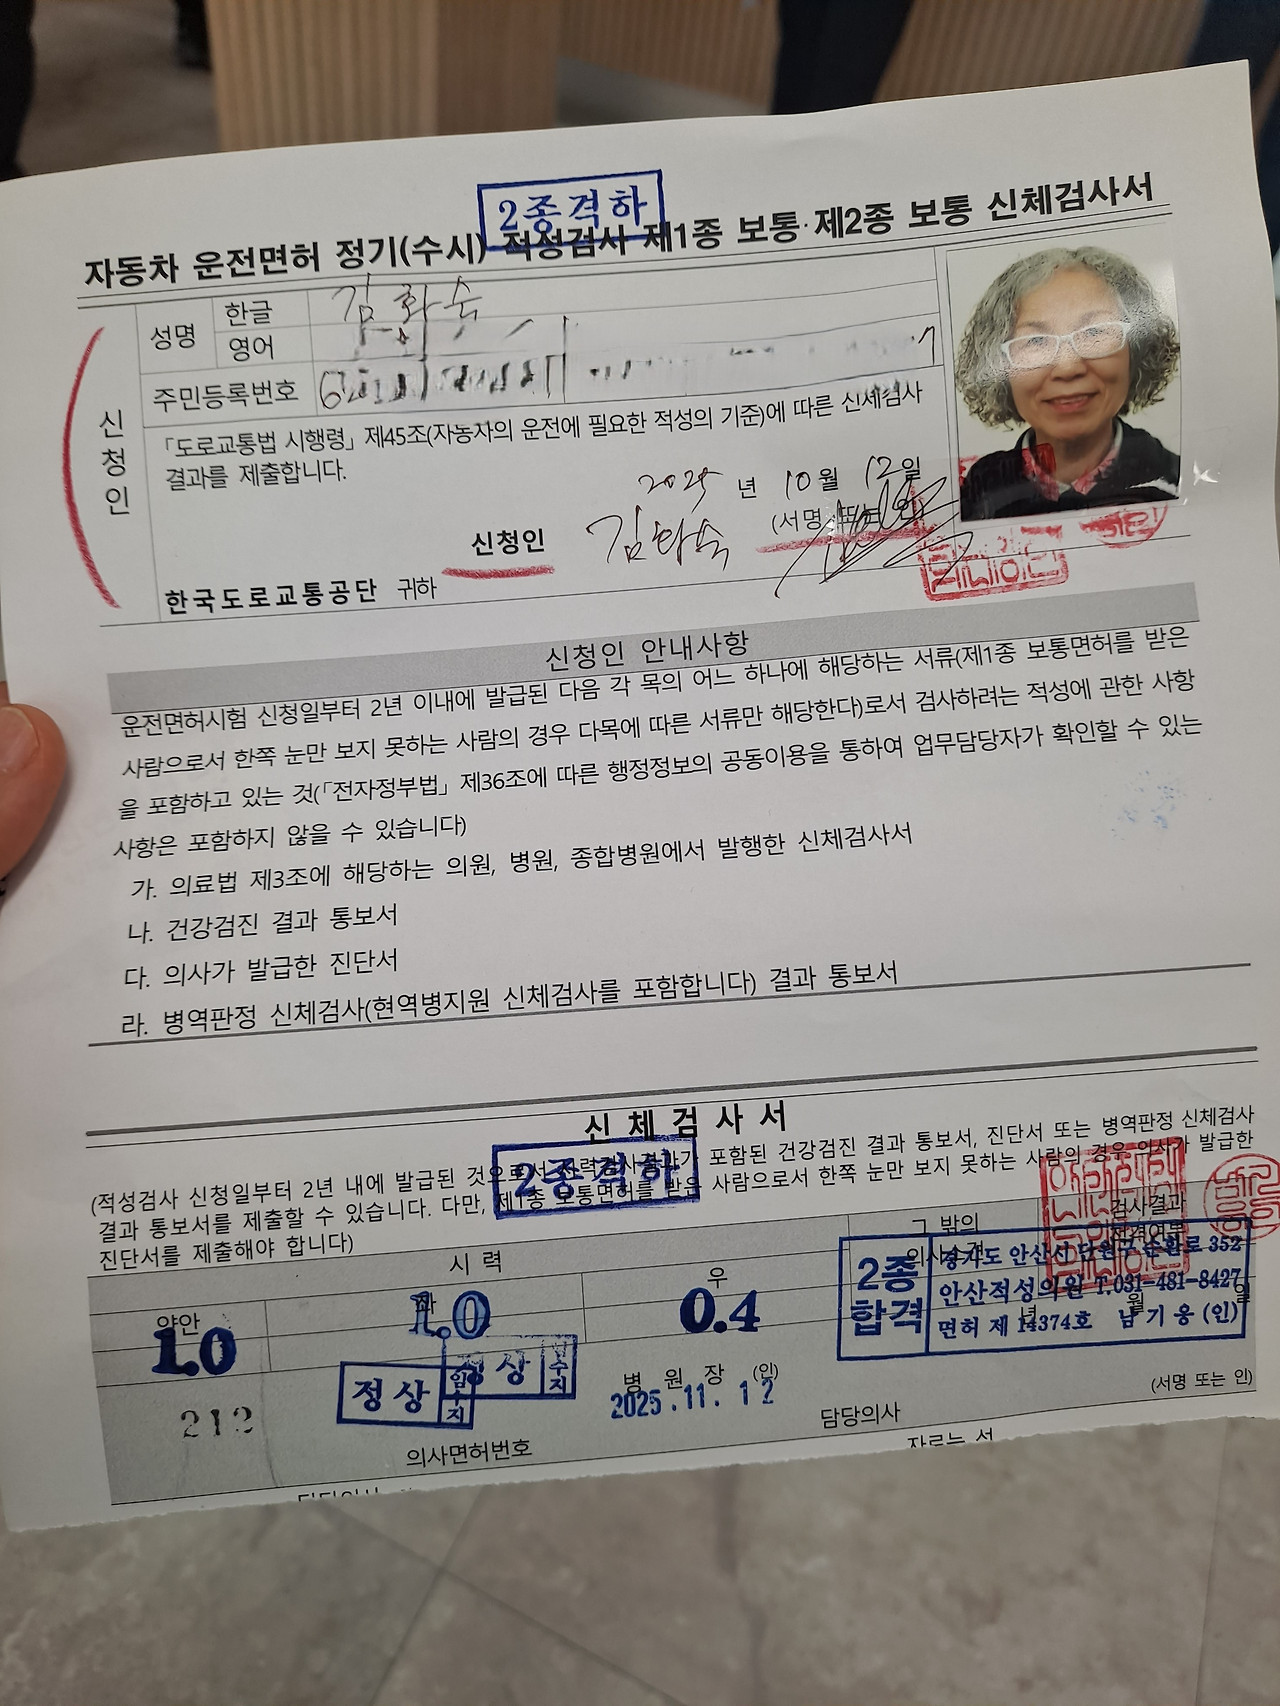 2종격하
자동차 운전면허 정기(수시) 적성검사 제1종 보통·제2종 보통 신체검사서
신청인
성명
한글
김화숙
영어
주민등록번호
「도로교통법 시행령」 제45조(자동차의 운전에 필요한 적성의 기준)에 따른 신체검사
결과를 제출합니다.
2025 년 10월 12일
신청인 김화숙 (서명 또는 인)
한국도로교통공단 귀하
신청인 안내사항
운전면허시험 신청일부터 2년 이내에 발급된 다음 각 목의 어느 하나에 해당하는 서류(제1종 보통면허를 받은
사람으로서 한쪽 눈만 보지 못하는 사람의 경우 다목에 따른 서류만 해당한다)로서 검사하려는 적성에 관한 사항
을 포함하고 있는 것(「전자정부법」 제36조에 따른 행정정보의 공동이용을 통하여 업무담당자가 확인할 수 있는
사항은 포함하지 않을 수 있습니다)
가. 의료법 제3조에 해당하는 의원, 병원, 종합병원에서 발행한 신체검사서
나. 건강검진 결과 통보서
다. 의사가 발급한 진단서
라. 병역판정 신체검사(현역병지원 신체검사를 포함합니다) 결과 통보서
신체검사서
2종격하
(적성검사 신청일부터 2년 내에 발급된 것으로서 시력검사결과가 포함된 건강검진 결과 통보서, 진단서 또는 병역판정 신체검사
결과 통보서를 제출할 수 있습니다. 다만, 제1종 보통면허를 받은 사람으로서 한쪽 눈만 보지 못하는 사람의 경우 의사가 발급한
진단서를 제출해야 합니다)
시력
그 밖의
의사소견
검사결과
양안
1.0
좌
1.0
우
0.4
2종
합격
경기도 안산시 단원구 순환로 352
안산적성의원 T.031-481-8427
면허 제 14374호 남기웅 (인)
년 월 일
정상
정상
212
병원장 (인)
2025.11.12
(서명 또는 인)
의사면허번호
담당의사